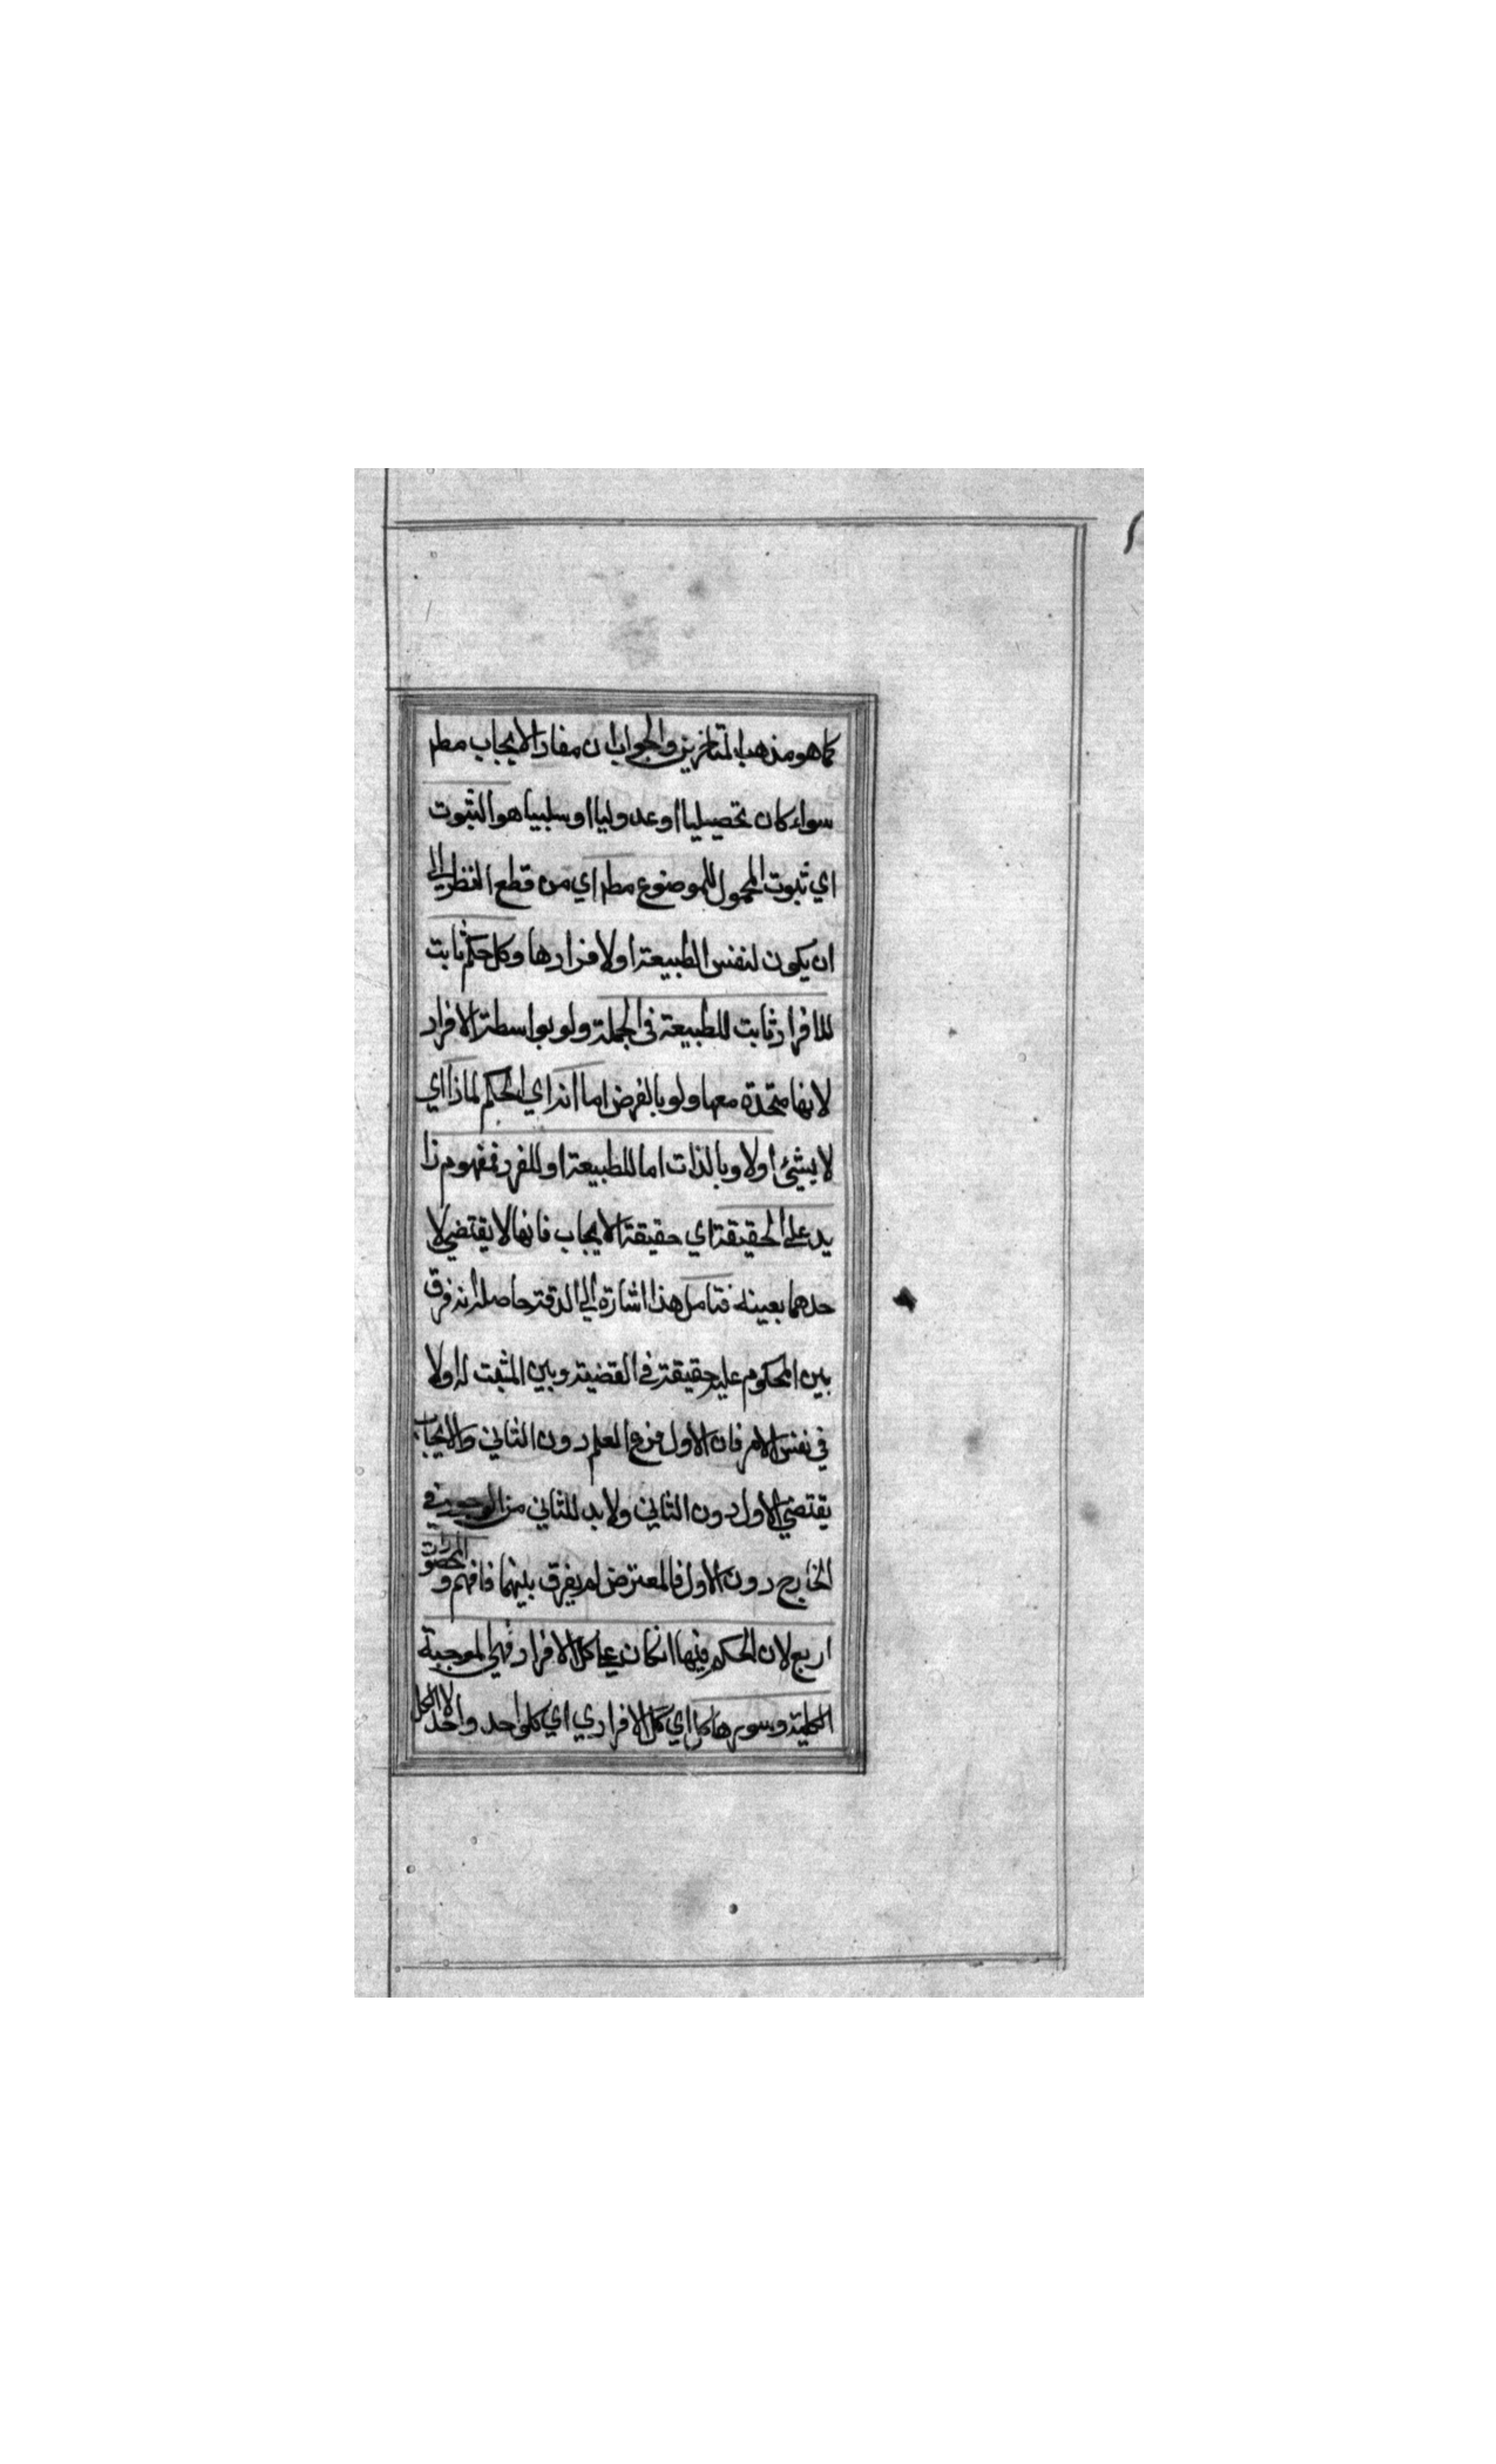 كما هو مذهب المتاخرين والجواب ان مفاد الايجاب مطم
سواء كان تحصيليا او عدوليا او سلبيا هو الثبوت
اي ثبوت المحمول للموضوع مطم اي من قطع النظر الى
ان يكون لنفس الطبيعة او لافرادها وكل حكم ثابت
للافراد ثابت للطبيعة في الجملة ولو بواسطة الافراد
لانها متحدة معها ولو بالفرض اما انه اي الحكم لماذا اي
لا يشئ اولا وبالذات اما للطبيعة او للفرد فمفهوم زا
يد على الحقيقة اي حقيقة الايجاب فانها لا يقتضي لا
حدهما بعينه فتامل هذا اشارة الى الدقة حاصله انه فرق
بين المحكوم عليه حقيقة في القضية وبين المثبت له اولا
في نفس الامر فان الاول فرع العلم دون الثاني والايجاب
يقتضي الاول دون الثاني ولا بد للثاني من الوجود في
الخارج دون الاول فالمعترض لم يفرق بينهما فافهم والمحصورات
اربع لان الحكم فيها انكان على كل الافراد فهي الموجبة
الكلية وسورها كل اي كل الافرادي اي كل واحد واحد لا الكل